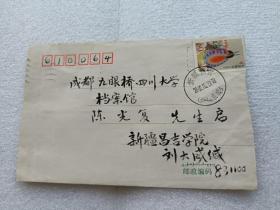 610064
成都九眼桥四川大学
档案馆
陈光复 先生启
新疆昌吉学院
刘大成缄
邮政编码 831100